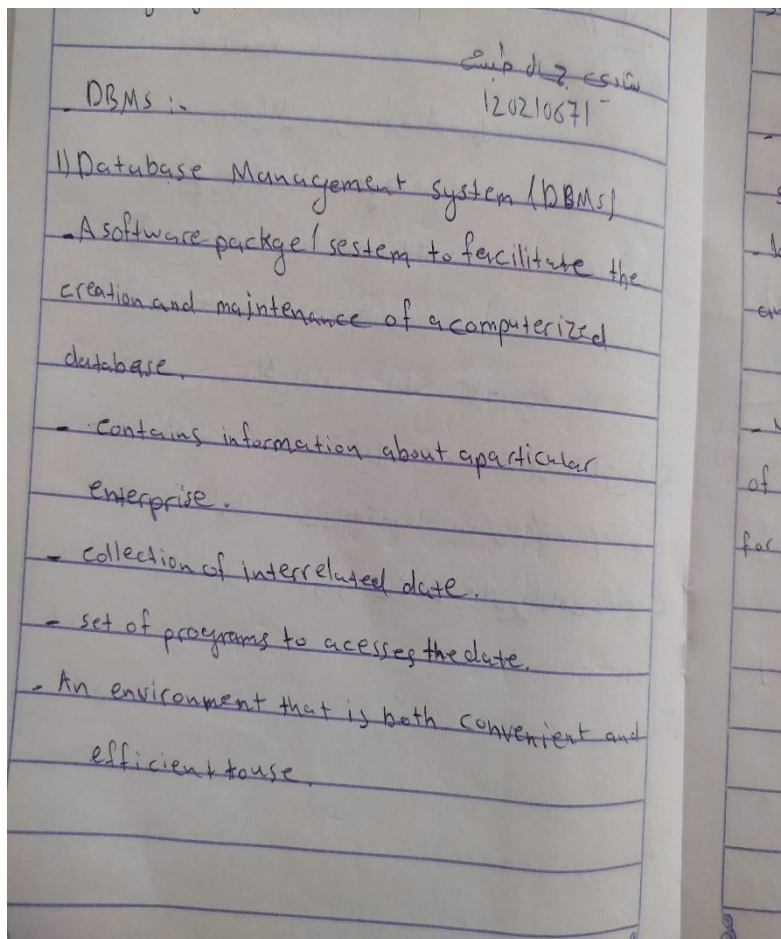 جهاد
120210671
- DBMS :-
1) Database Management system (DBMS)
- A software package / sestem to fercilitate the
creation and maintenance of a computerized
database.
- contains information about a particular
enterprise.
- collection of interrelated date.
- set of programs to acesses the date.
- An environment that is both convenient and
efficient to use.
of
for